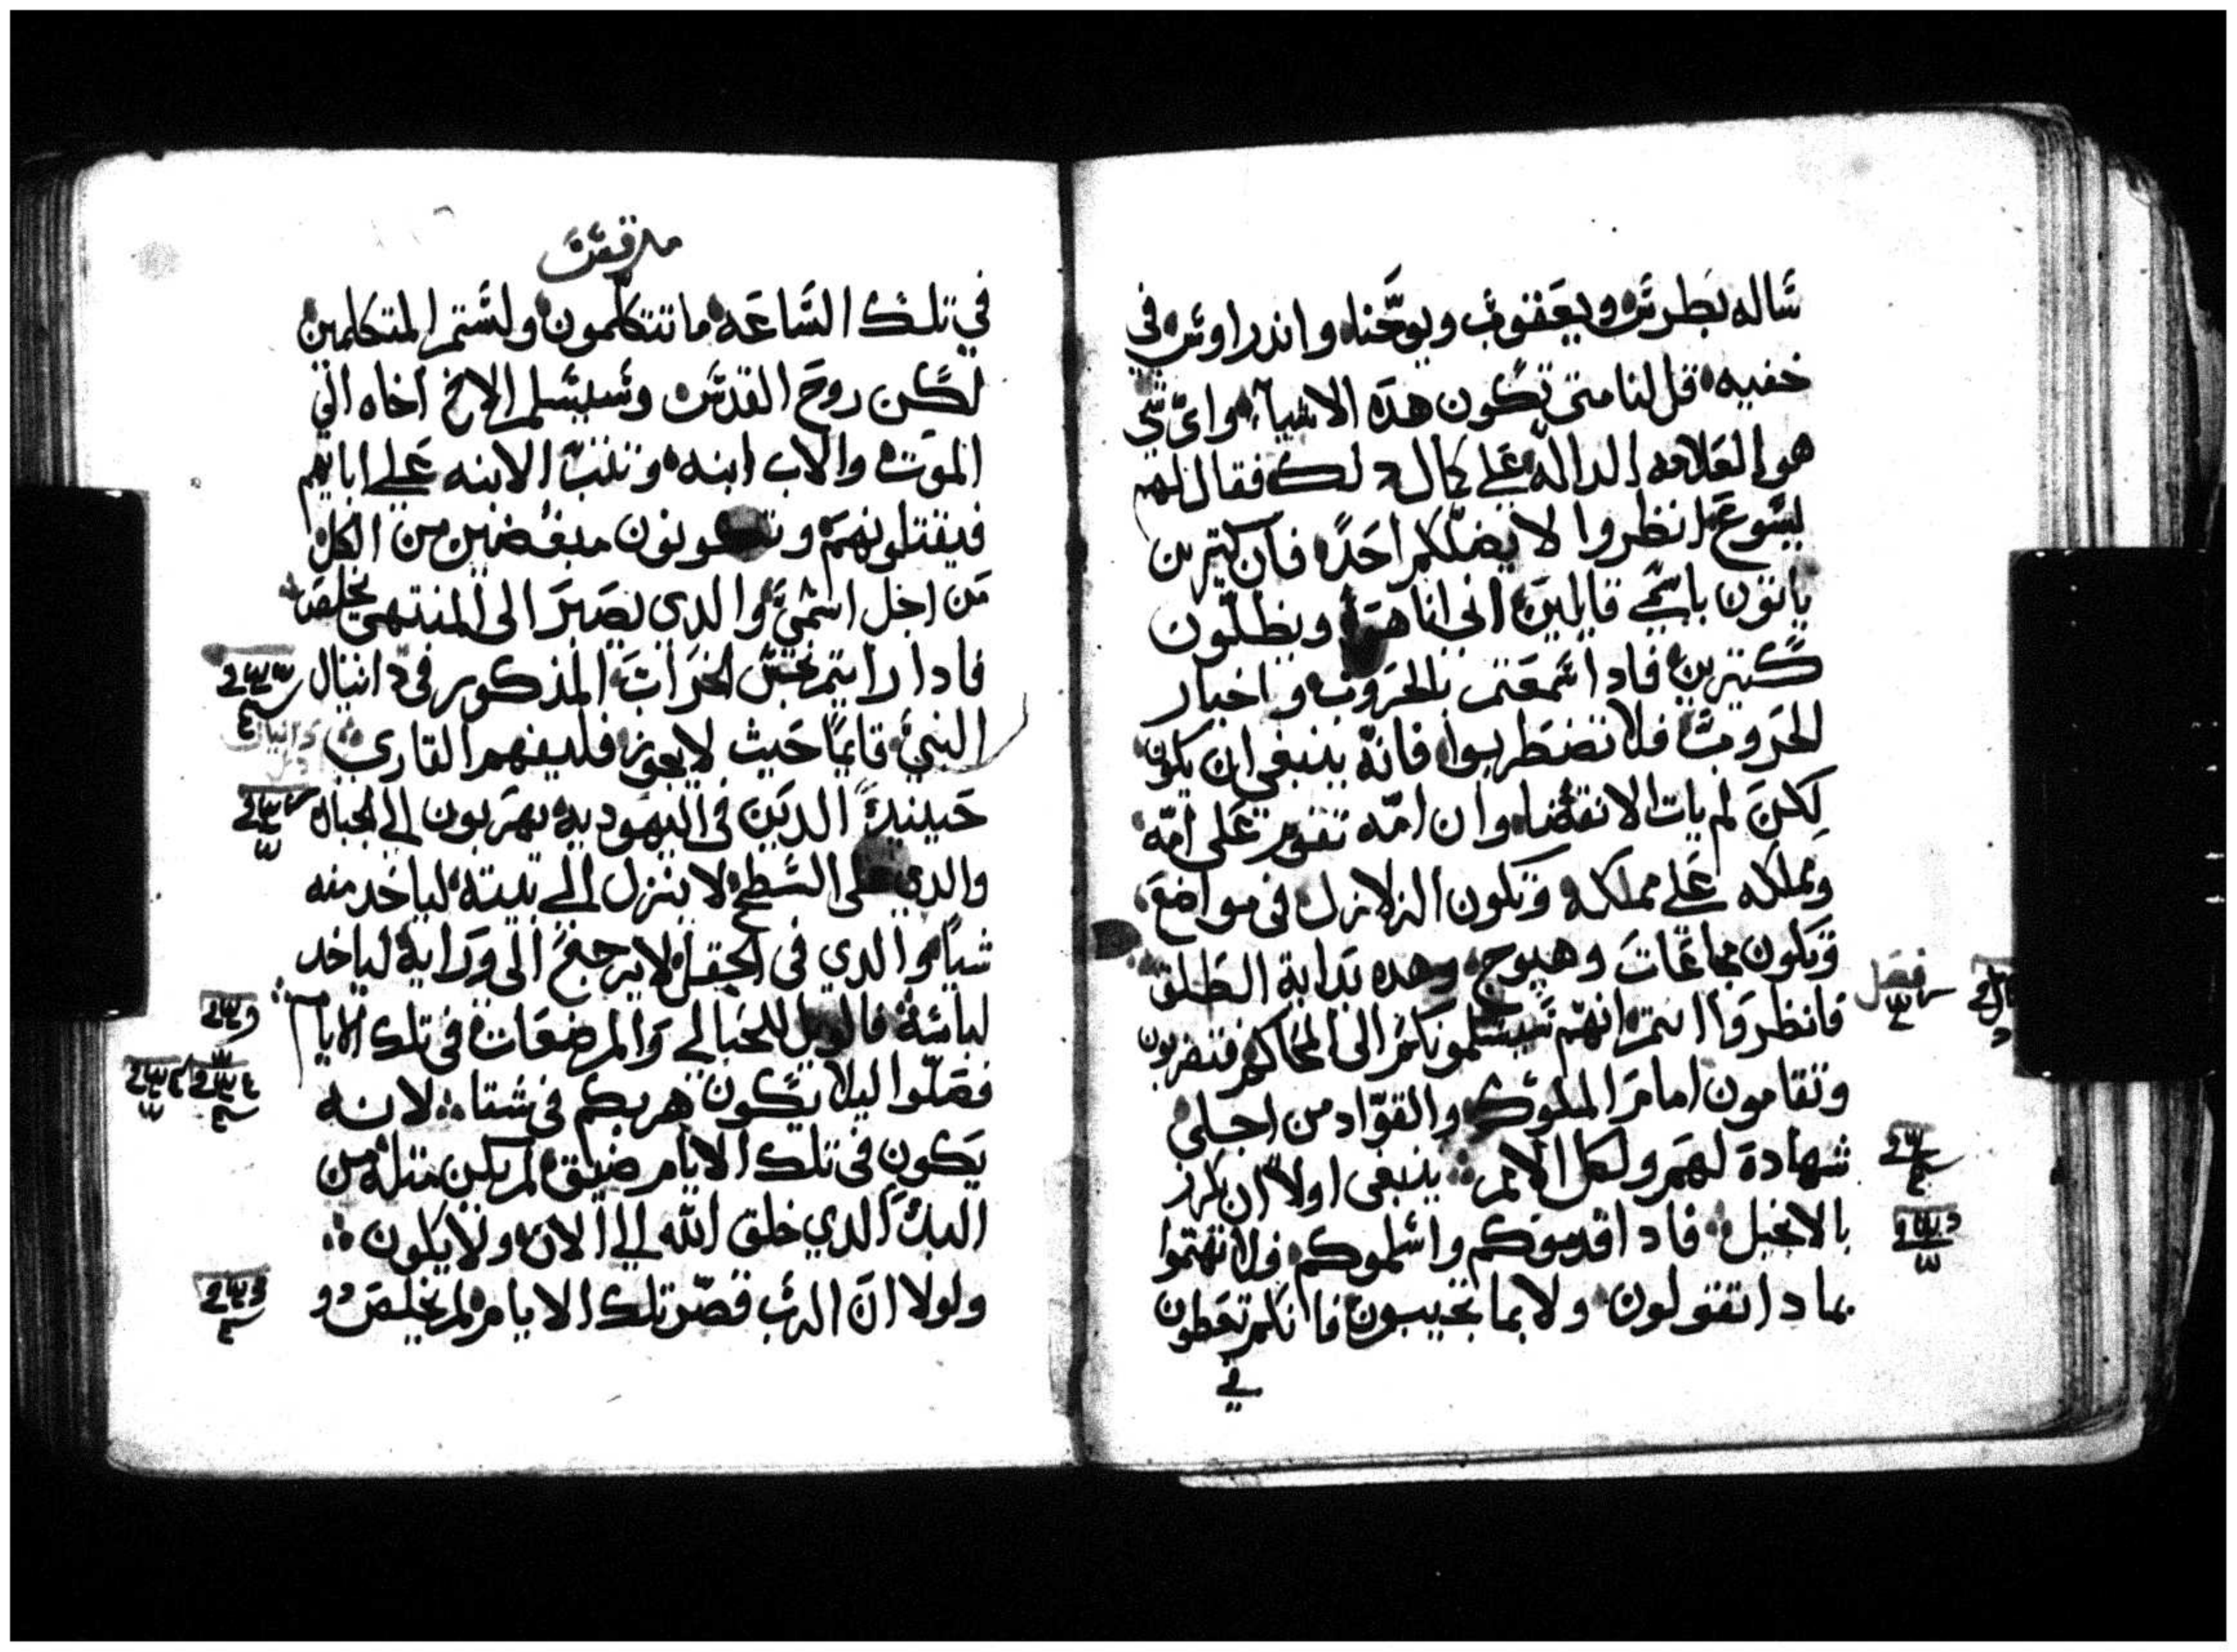 ساله بطرس ويعقوب ويوحنا واندراوس في
خفيه قل لنا متى تكون هده الاشياء واي شي
هو العلامه الداله على كمال دلك فقال لهم
يسوع انظروا لا يضلكم احد فان كتيرين
ياتون باسمي قايلين اني انا هو ويظلون
كتيرين فادا سمعتم بالحروب واخبار
الحروب فلا تضطربوا فانه ينبغي ان يكون
لكن لم يات الانقضا وان امه تقوم على امه
ومملكه على مملكه وتكون الزلازل في مواضع
وتكون مجاعات وهيوج وهده بداية الطلق
فصل
فانظروا انتم انهم سيسلمونكم الى المحاكم فتضربون
وتقامون امام الملوك والقواد من اجلي
شهادة لهم ولكل الامم ينبغي اولا ان يكرز
بالانجيل فادا قدموكم واسلموكم فلا تهتموا
بما دا تقولون ولا بما تجيبون فانكم تعطون
في
مرقس
في تلك الساعه ما تتكلمون ولستم المتكلمين
لكن روح القدس وسيسلم الاخ اخاه الى
الموت والاب ابنه وتثب الابنه على اباتهم
فيقتلونهم وتكونون مبغضين من الكل
من اجل اسمي والدي يصبر الى المنتهى يخلص
فادا رايتم نجس الخراب المذكور في دانيال
النبي قايما حيث لا يجوز فليفهم القاري
دانيال
حينيد الدين في اليهوديه يهربون الي الجبال
والدي على السطح لا ينزل الي بيته لياخد منه
شيا والدي في الحقل لا يرجع الى ورايه لياخد
لباسه فالويل للحبالي والمرضعات في تلك الايام
فصلوا ليلا يكون هربكم في شتا لانه
يكون في تلك الايام ضيق لم يكن متله من
البدء الدي خلق الله الي الان ولا يكون
ولولا ان الرب قصر تلك الايام لم يخلص دو